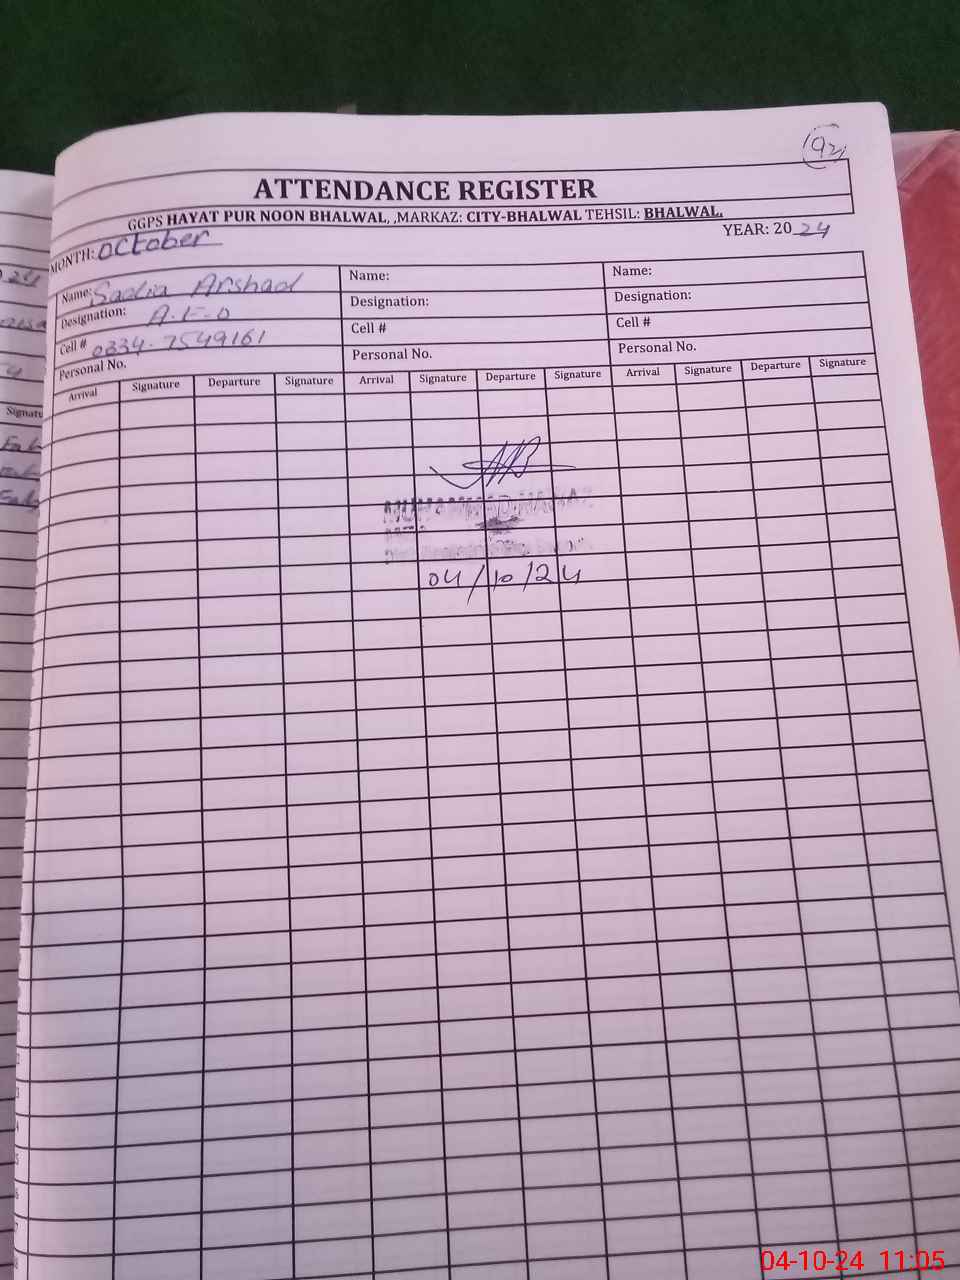 92
ATTENDANCE REGISTER
GGPS HAYAT PUR NOON BHALWAL, ,MARKAZ: CITY-BHALWAL TEHSIL: BHALWAL.
MONTH: October YEAR: 2024
Name: Sadia Arshad Name: Name:
Designation: A.E.O Designation: Designation:
Cell # 0334-7549161 Cell # Cell #
Personal No. Personal No. Personal No.
Arrival Signature Departure Signature Arrival Signature Departure Signature Arrival Signature Departure Signature
MUHAMMAD NAWAZ
04/10/24
04-10-24 11:05